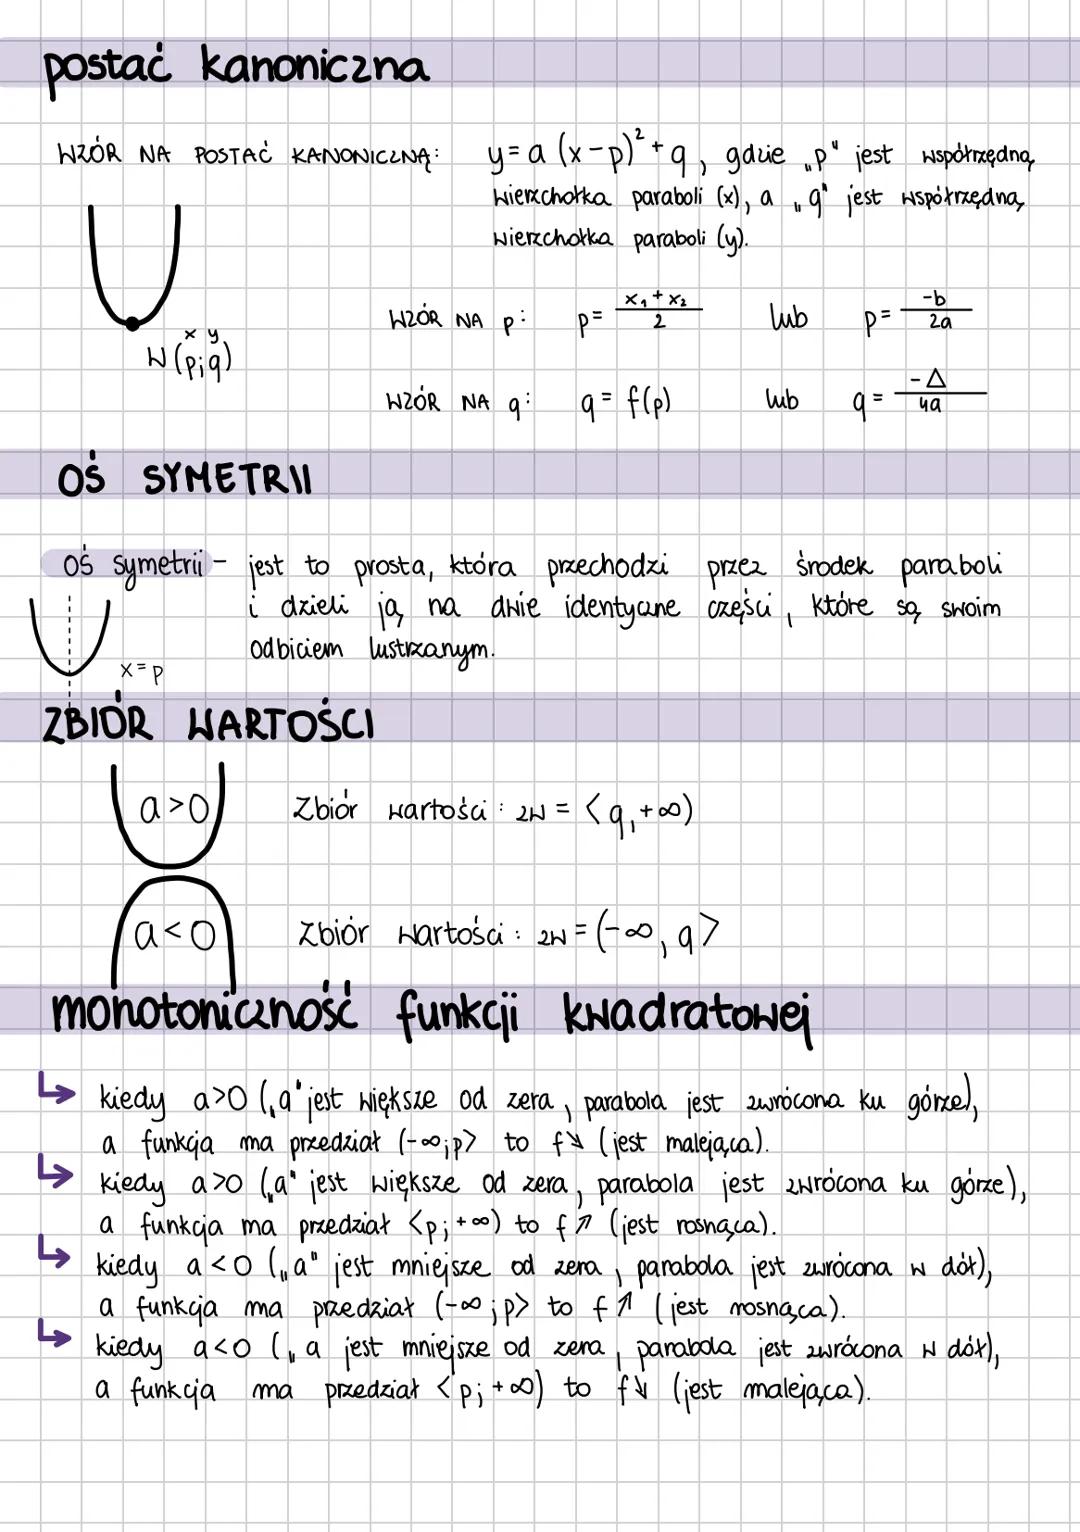 postać kanoniczna
WZÓR NA POSTAĆ KANONICZNĄ: y = a (x-p)² + q, gdzie „p" jest współrzędną
wierzchołka paraboli (x), a „q" jest współrzędną
wierzchołka paraboli (y).
x y
W (p;q)
WZÓR NA p: p = \frac{x₁ + x₂}{2} lub p = \frac{-b}{2a}
WZÓR NA q: q = f(p) lub q = \frac{-Δ}{4a}
OŚ SYMETRII
oś symetrii - jest to prosta, która przechodzi przez środek paraboli
i dzieli ją na dwie identyczne części, które są swoim
odbiciem lustrzanym.
x = p
ZBIÓR WARTOŚCI
a>0 Zbiór wartości: ZW = <q,+∞)
a<0 Zbiór wartości: ZW = (-∞, q>
monotoniczność funkcji kwadratowej
↳ kiedy a>0 („a" jest większe od zera, parabola jest zwrócona ku górze),
a funkcja ma przedział (-∞;p> to f↘ (jest malejąca).
↳ kiedy a>0 („a" jest większe od zera, parabola jest zwrócona ku górze),
a funkcja ma przedział <p;+∞) to f↗ (jest rosnąca).
↳ kiedy a<0 („a" jest mniejsze od zera, parabola jest zwrócona w dół),
a funkcja ma przedział (-∞;p> to f↗ (jest rosnąca).
↳ kiedy a<0 („a jest mniejsze od zera, parabola jest zwrócona w dół),
a funkcja ma przedział <p;+∞) to f↘ (jest malejąca).